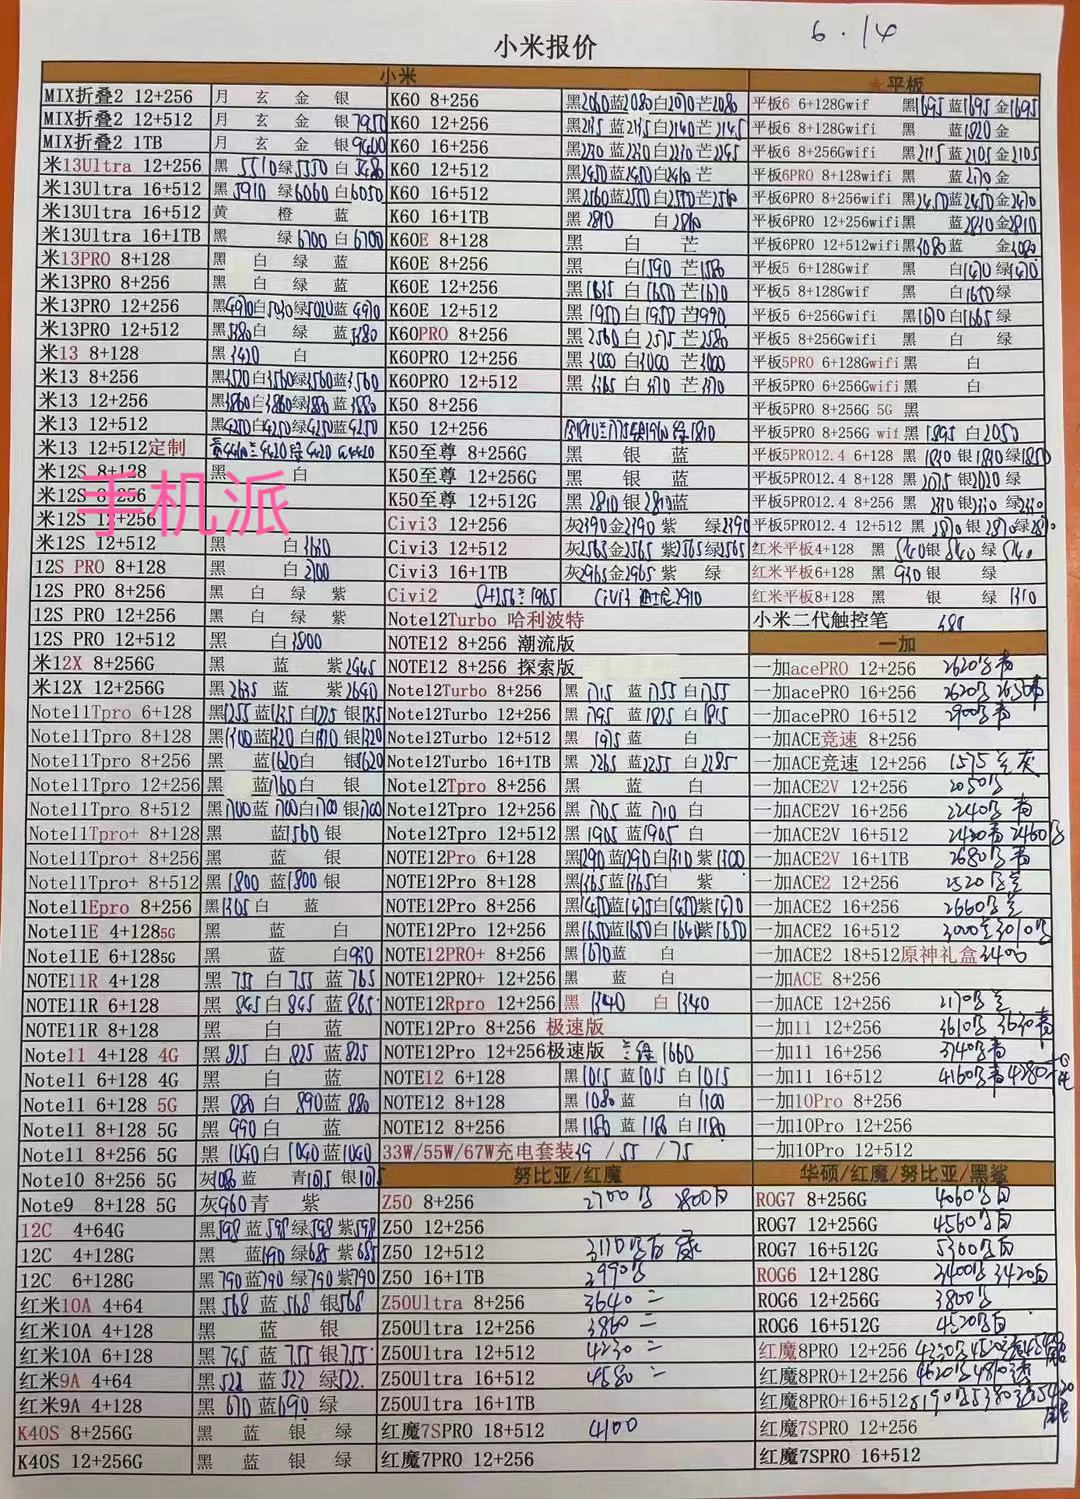 6.14
小米报价
小米
MIX折叠2 12+256 月 玄 金 银
MIX折叠2 12+512 月 玄 金 银7950
MIX折叠2 1TB 月 玄 金 银9400
米13Ultra 12+256 黑 5510绿5550 白
米13Ultra 16+512 黑 5910 绿6060 白6050
米13Ultra 16+512 黄 橙 蓝
米13Ultra 16+1TB 黑 绿6700 白6700
米13PRO 8+128 黑 白 绿 蓝
米13PRO 8+256 黑 白 绿 蓝
米13PRO 12+256 黑4970白5030绿5020蓝4970
米13PRO 12+512 黑 白 绿 蓝
米13 8+128 黑3420 白
米13 8+256 黑3520白3560绿3560蓝3560
米13 12+256 黑3860白3860绿 蓝3880
米13 12+512 黑4250白4250绿4250蓝4250
米13 12+512定制
米12S 8+128 黑 白
米12S 8+256
手机派
米12S 12+256
米12S 12+512 黑 白
12S PRO 8+128 黑 白2700
12S PRO 8+256 黑 白 绿 紫
12S PRO 12+256 黑 白 绿 紫
12S PRO 12+512 黑 白3800
米12X 8+256G 黑 蓝 紫2445
米12X 12+256G 黑2635 蓝 紫2640
Note11Tpro 6+128 黑1255 蓝 白 银
Note11Tpro 8+128 黑1300蓝1320 白1310 银1320
Note11Tpro 8+256 黑 蓝1620白 银1620
Note11Tpro 12+256 黑 蓝1760白 银
Note11Tpro 8+512 黑1700蓝1700白1700 银1700
Note11Tpro+ 8+128 黑 蓝1560 银
Note11Tpro+ 8+256 黑 蓝 银
Note11Tpro+ 8+512 黑1800 蓝1800 银
Note11Epro 8+256 黑1305 白 蓝
Note11E 4+128 5G 黑 蓝 白
Note11E 6+128 5G 黑 蓝 白930
NOTE11R 4+128 黑 755 白 755 蓝 765
NOTE11R 6+128 黑 845 白 845 蓝 865
NOTE11R 8+128 黑 白 蓝
Note11 4+128 4G 黑 825 白 825 蓝 825
Note11 6+128 4G 黑 白 蓝
Note11 6+128 5G 黑 880 白 890蓝 880
Note11 8+128 5G 黑 990 白 蓝
Note11 8+256 5G 黑 1040 白 1040 蓝1040
Note10 8+256 5G 灰 蓝 青1015 银1015
Note9 8+128 5G 灰960 青 紫
12C 4+64G 黑598 蓝598绿598 紫598
12C 4+128G 黑 蓝690 绿685 紫685
12C 6+128G 黑790 蓝790 绿790 紫790
红米10A 4+64 黑568 蓝568 银568
红米10A 4+128 黑 蓝 银
红米10A 6+128 黑745 蓝755 银755
红米9A 4+64 黑522 蓝522 绿522
红米9A 4+128 黑670 蓝690 绿
K40S 8+256G 黑 蓝 银 绿
K40S 12+256G 黑 蓝 银 绿
K60 8+256 黑2060蓝2080白2070芒2080
K60 12+256 黑2135 蓝2135白2140芒2145
K60 16+256 黑2230 蓝2230白2230芒2245
K60 12+512 黑2450蓝2450白2460芒
K60 16+512 黑2560蓝2550白2570芒2570
K60 16+1TB 黑2810 白2810
K60E 8+128 黑 白 芒
K60E 8+256 黑 白1590 芒1580
K60E 12+256 黑1635 白1650 芒1670
K60E 12+512 黑1950 白1950 芒1990
K60PRO 8+256 黑2560 白2575 芒2580
K60PRO 12+256 黑3000白3000 芒3000
K60PRO 12+512 黑3365 白3370 芒3370
K50 8+256
K50 12+256
K50至尊 8+256G 黑 银 蓝
K50至尊 12+256G 黑 银 蓝
K50至尊 12+512G 黑2810 银2810蓝
Civi3 12+256 灰2390金2390 紫 绿2390
Civi3 12+512 灰2565金2565 紫2565绿2565
Civi3 16+1TB 灰2965金2965 紫 绿
Civi2 Civi3 迪士尼2910
Note12Turbo 哈利波特
NOTE12 8+256 潮流版
NOTE12 8+256 探索版
Note12Turbo 8+256 黑1715 蓝1755 白1755
Note12Turbo 12+256 黑1795 蓝1825 白1815
Note12Turbo 12+512 黑 1975 蓝 白
Note12Turbo 16+1TB 黑2265 蓝2255 白2285
Note12Tpro 8+256 黑 蓝 白
Note12Tpro 12+256 黑1705 蓝1710 白
Note12Tpro 12+512 黑1905 蓝1905 白
NOTE12Pro 6+128 黑1290蓝1290白1310紫1300
NOTE12Pro 8+128 黑1365蓝1365白 紫
NOTE12Pro 8+256 黑1470蓝1475白1470紫1470
NOTE12Pro 12+256 黑1650蓝1650白1640紫1650
NOTE12PRO+ 8+256 黑1670蓝 白
NOTE12PRO+ 12+256 黑 蓝 白
NOTE12Rpro 12+256 黑 1340 白 1340
NOTE12Pro 8+256 极速版
NOTE12Pro 12+256极速版 兰绿1660
NOTE12 6+128 黑1015 蓝1015 白1015
NOTE12 8+128 黑1080 蓝 白1100
NOTE12 8+256 黑1180 蓝1180 白1180
33W/55W/67W充电套装39 / 55 / 75
努比亚/红魔
Z50 8+256 2700 白
Z50 12+256
Z50 12+512 3110
Z50 16+1TB 3990
Z50Ultra 8+256 3640 二
Z50Ultra 12+256 3860 二
Z50Ultra 12+512 4230 二
Z50Ultra 16+512 4580 二
Z50Ultra 16+1TB
红魔7SPRO 18+512 4100
红魔7PRO 12+256
★平板
平板6 6+128Gwif 黑1695 蓝1695 金1695
平板6 8+128Gwifi 黑 蓝1820 金
平板6 8+256Gwifi 黑2115 蓝2105 金2105
平板6PRO 8+128wifi 黑 蓝 金
平板6PRO 8+256wifi 黑2450蓝2450 金2470
平板6PRO 12+256wifi黑 蓝2810金2810
平板6PRO 12+512wifi黑3080蓝 金3080
平板5 6+128Gwif 黑 白1470 绿1470
平板5 8+128Gwif 黑 白1650 绿
平板5 6+256Gwif 黑1670白1665绿
平板5 8+256Gwif 黑 白 绿
平板5PRO 6+128Gwifi黑 白
平板5PRO 6+256Gwifi黑 白
平板5PRO 8+256G 5G 黑
平板5PRO 8+256G wif 黑1895 白2050
平板5PRO12.4 6+128 黑1830 银1830绿1850
平板5PRO12.4 8+128 黑 银2020 绿
平板5PRO12.4 8+256 黑2330银2330 绿2330
平板5PRO12.4 12+512 黑2870银2870绿2870
红米平板4+128 黑 840银 840 绿 840
红米平板6+128 黑 930 银 绿
红米平板8+128 黑 银 绿 1310
小米二代触控笔
一加
一加acePRO 12+256 2620黑 青
一加acePRO 16+256 2620黑 2630青
一加acePRO 16+512 2900黑 青
一加ACE竞速 8+256
一加ACE竞速 12+256 1575 兰 灰
一加ACE2V 12+256 2050黑
一加ACE2V 16+256 2240黑 青
一加ACE2V 16+512 2430青 2460黑
一加ACE2V 16+1TB 2680黑 青
一加ACE2 12+256 2520黑兰
一加ACE2 16+256 2660黑兰
一加ACE2 16+512 3000兰3010黑
一加ACE2 18+512原神礼盒3400
一加ACE 8+256
一加ACE 12+256 2170黑兰
一加11 12+256 3610黑 3630青
一加11 16+256 3740黑青
一加11 16+512 4160黑青4280
一加10Pro 8+256
一加10Pro 12+256
一加10Pro 12+512
华硕/红魔/努比亚/黑鲨
ROG7 8+256G 4060黑白
ROG7 12+256G 4560黑白
ROG7 16+512G 5300黑白
ROG6 12+128G 3400黑3420白
ROG6 12+256G 3800黑
ROG6 16+512G 4520黑白
红魔8PRO 12+256
红魔8PRO+12+256
红魔8PRO+16+512
红魔7SPRO 12+256
红魔7SPRO 16+512